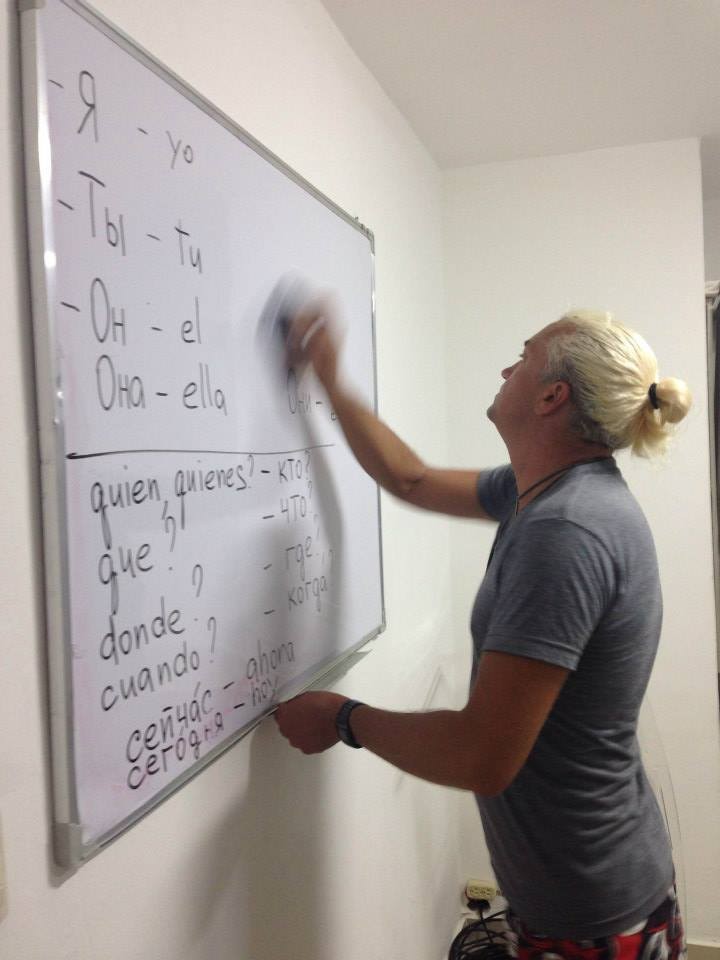 - Я - yo
- Ты - tu
- Он - el
Она - ella Они -
quien, quienes? - кто?
que? - что?
donde? - где?
cuando? - когда?
сейчáс - ahora
сегóдня - hoy